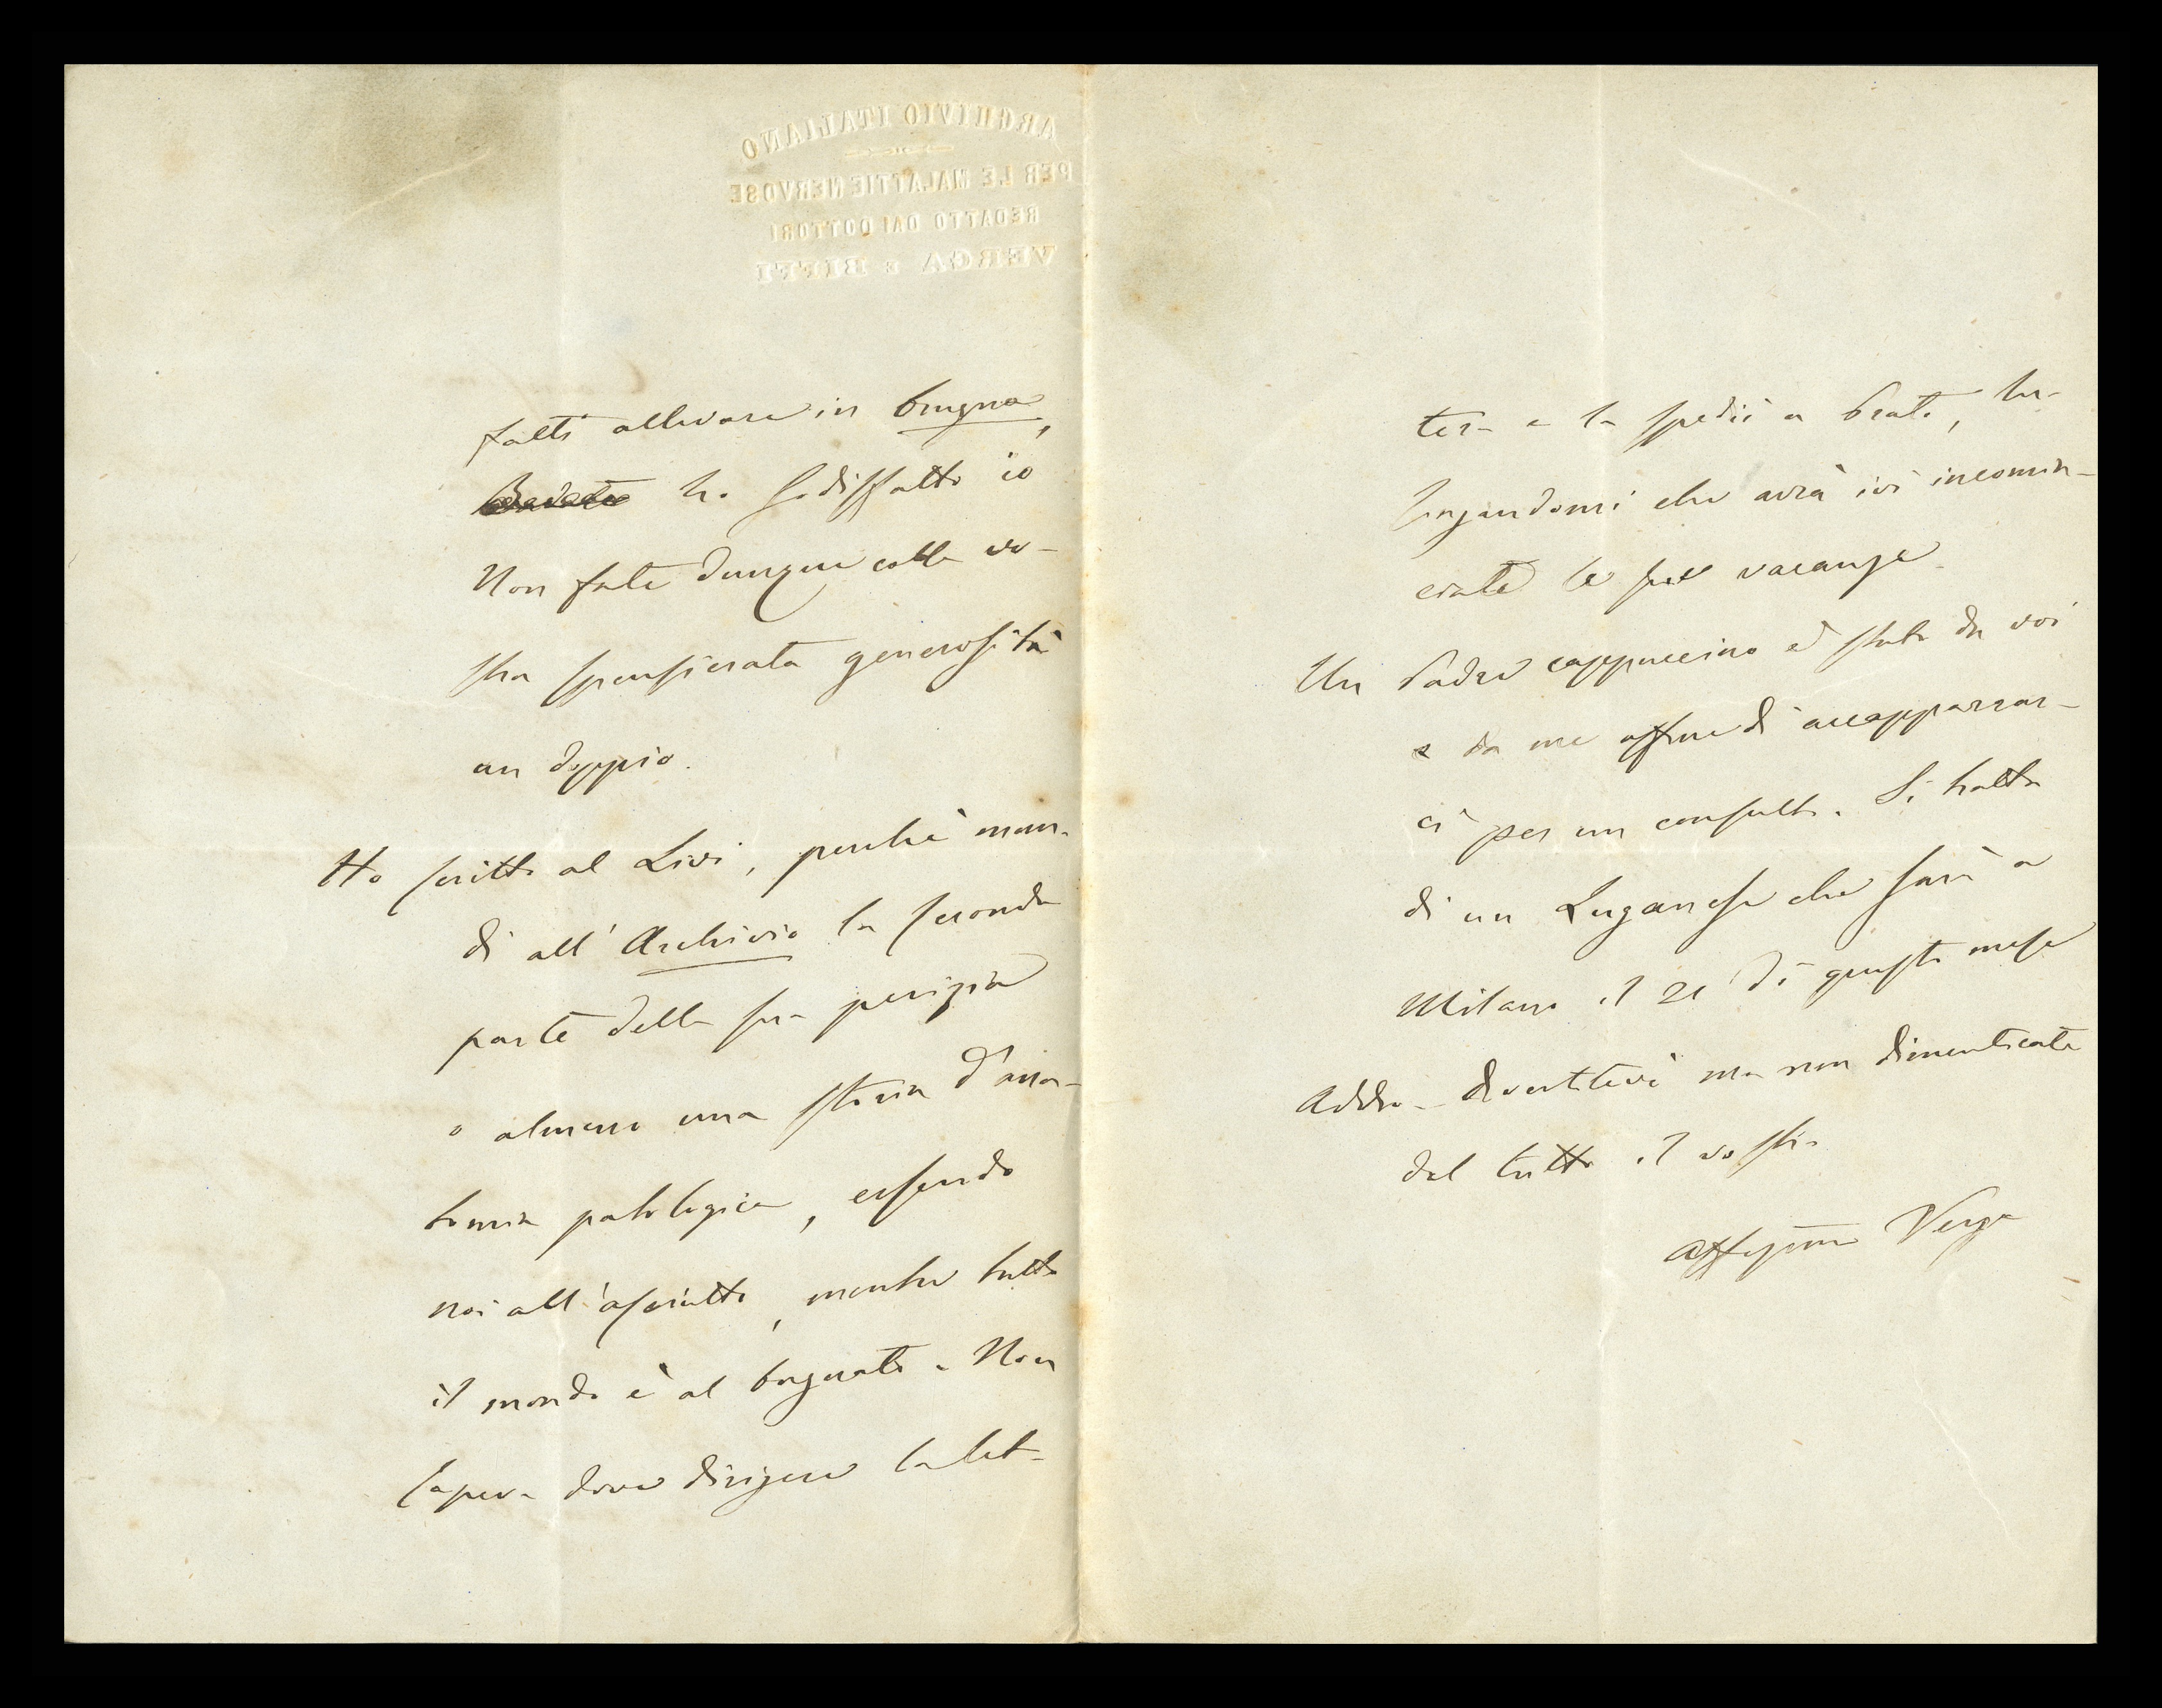 ARCHIVIO ITALIANO
PER LE MALATTIE NERVOSE
REDATTO DAI DOTTORI
VERGA E BIFFI
fatti allevare in brugna,
ho sodisfatto io
Non fate dunque colla vo-
stra spensierata generosità
un doppio.
Ho scritto al Livi, perchè man-
di all'Archivio la seconda
parte della sua perizia
o almeno una storia d'ana-
tomia patologica, essendo
noi all'asciutto, mentre tutto
il mondo è al bagnato. Non
sapeva dove dirigere la let-
tera e la spedii a Prato, lu-
singandomi che avrà ivi incomin-
ciate le sue vacanze.
Un Padre cappuccino è stato da voi
e da me affine di accapparrar-
ci per un consulto. Si tratta
di un Luganese che sarà a
Milano il 21 di questo mese
Addio. Divertitevi ma non dimenticate
del tutto il vostro
Verga